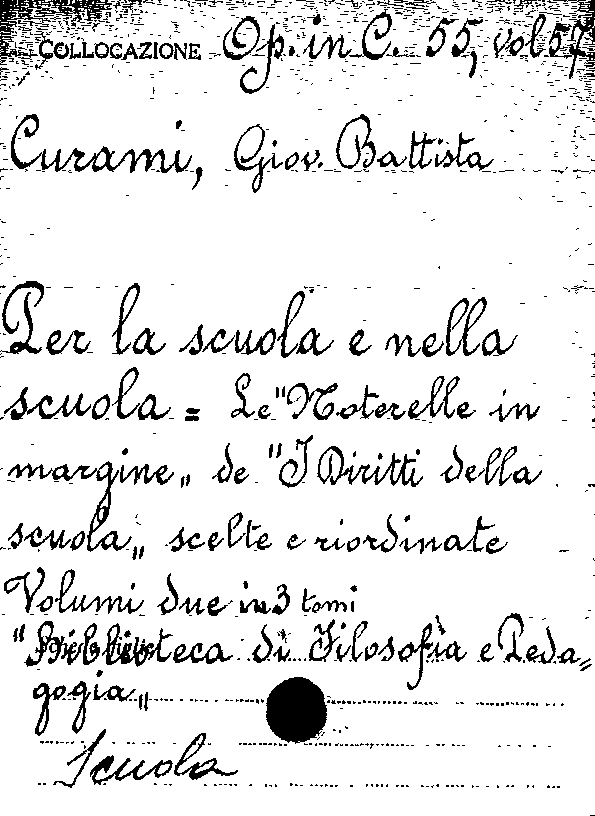 COLLOCAZIONE Op. in C. 55, vol 57
Curami, Giov. Battista
Per la scuola e nella
scuola = Le "Noterelle in
margine„ de "I Diritti della
scuola„ scelte e riordinate
Volumi due in 3 tomi
"Biblioteca di Filosofia e Peda=
gogia„
Scuola